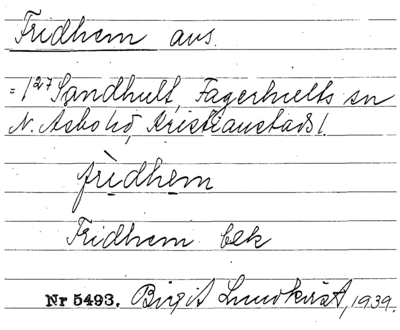 Fridhem avs.
= 1²⁷ Sandhult, Fagerhults sn
N. Åsbo hd, Kristianstads l.
frìdhem
Fridhem bek
Nr 5493. Birgit Lundkvist, 1939.